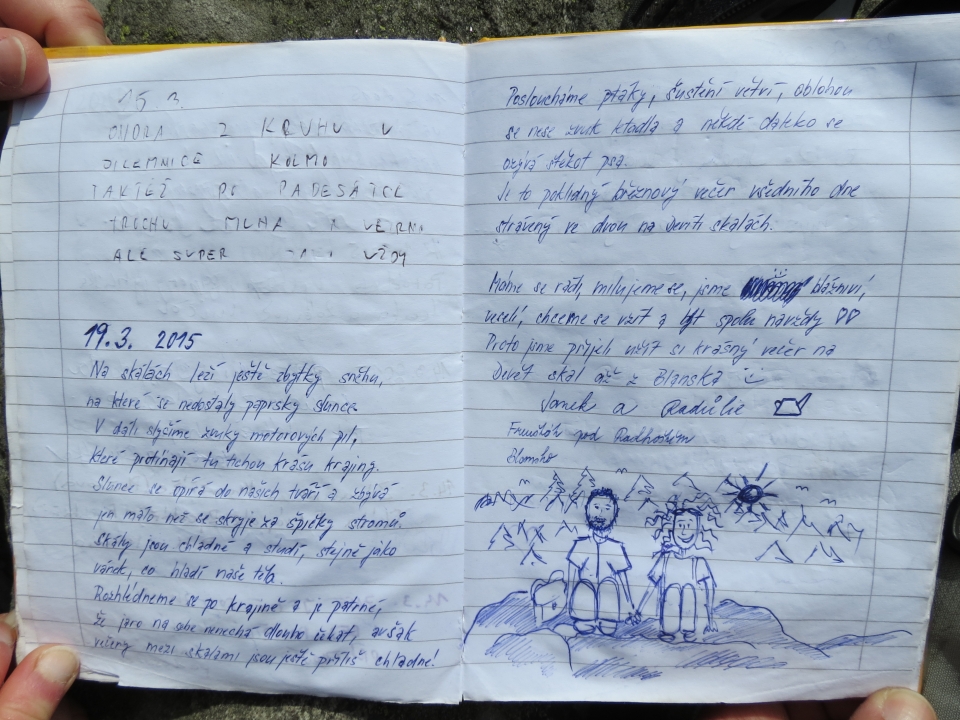 15. 3.
Z KRUHU V
KOLMO
TAKTÉŽ PO PADESÁTCE
TROCHU MLHA A
ALE SUPER VŽDY
19.3. 2015
Na skálách leží ještě zbytky sněhu,
na které se nedostaly paprsky slunce.
V dáli slyčíme zvuky motorových pil,
které protínají tu tichou krásu krajiny.
Slunce se opírá do našich tváří a zbývá
jen málo než se skryje za špičky stromů
skály jsou chladné a studí, stejně jako
vánek, co hladí naše těla.
Rozhlédneme se po krajině a je patrné,
že jaro na sebe nenechá dlouho čekat, avšak
večery mezi skálami jsou ještě příliš chladné!
Posloucháme ptáky, šustění větví, oblohou
se nese zvuk letadla a někde daleko se
ozývá štěkot psa.
Je to poklidný březnový večer všedního dne
strávený ve dvou na Devíti skálách.
Máme se rádi, milujeme se, jsme blázniví,
veselí, chceme se vzít a být spolu navždy ♡♡
Proto jsme přijeli užít si krásný večer na
Devět skal až z Blanska
Janek a Radůlie
pod Radhoštěm
Blansko